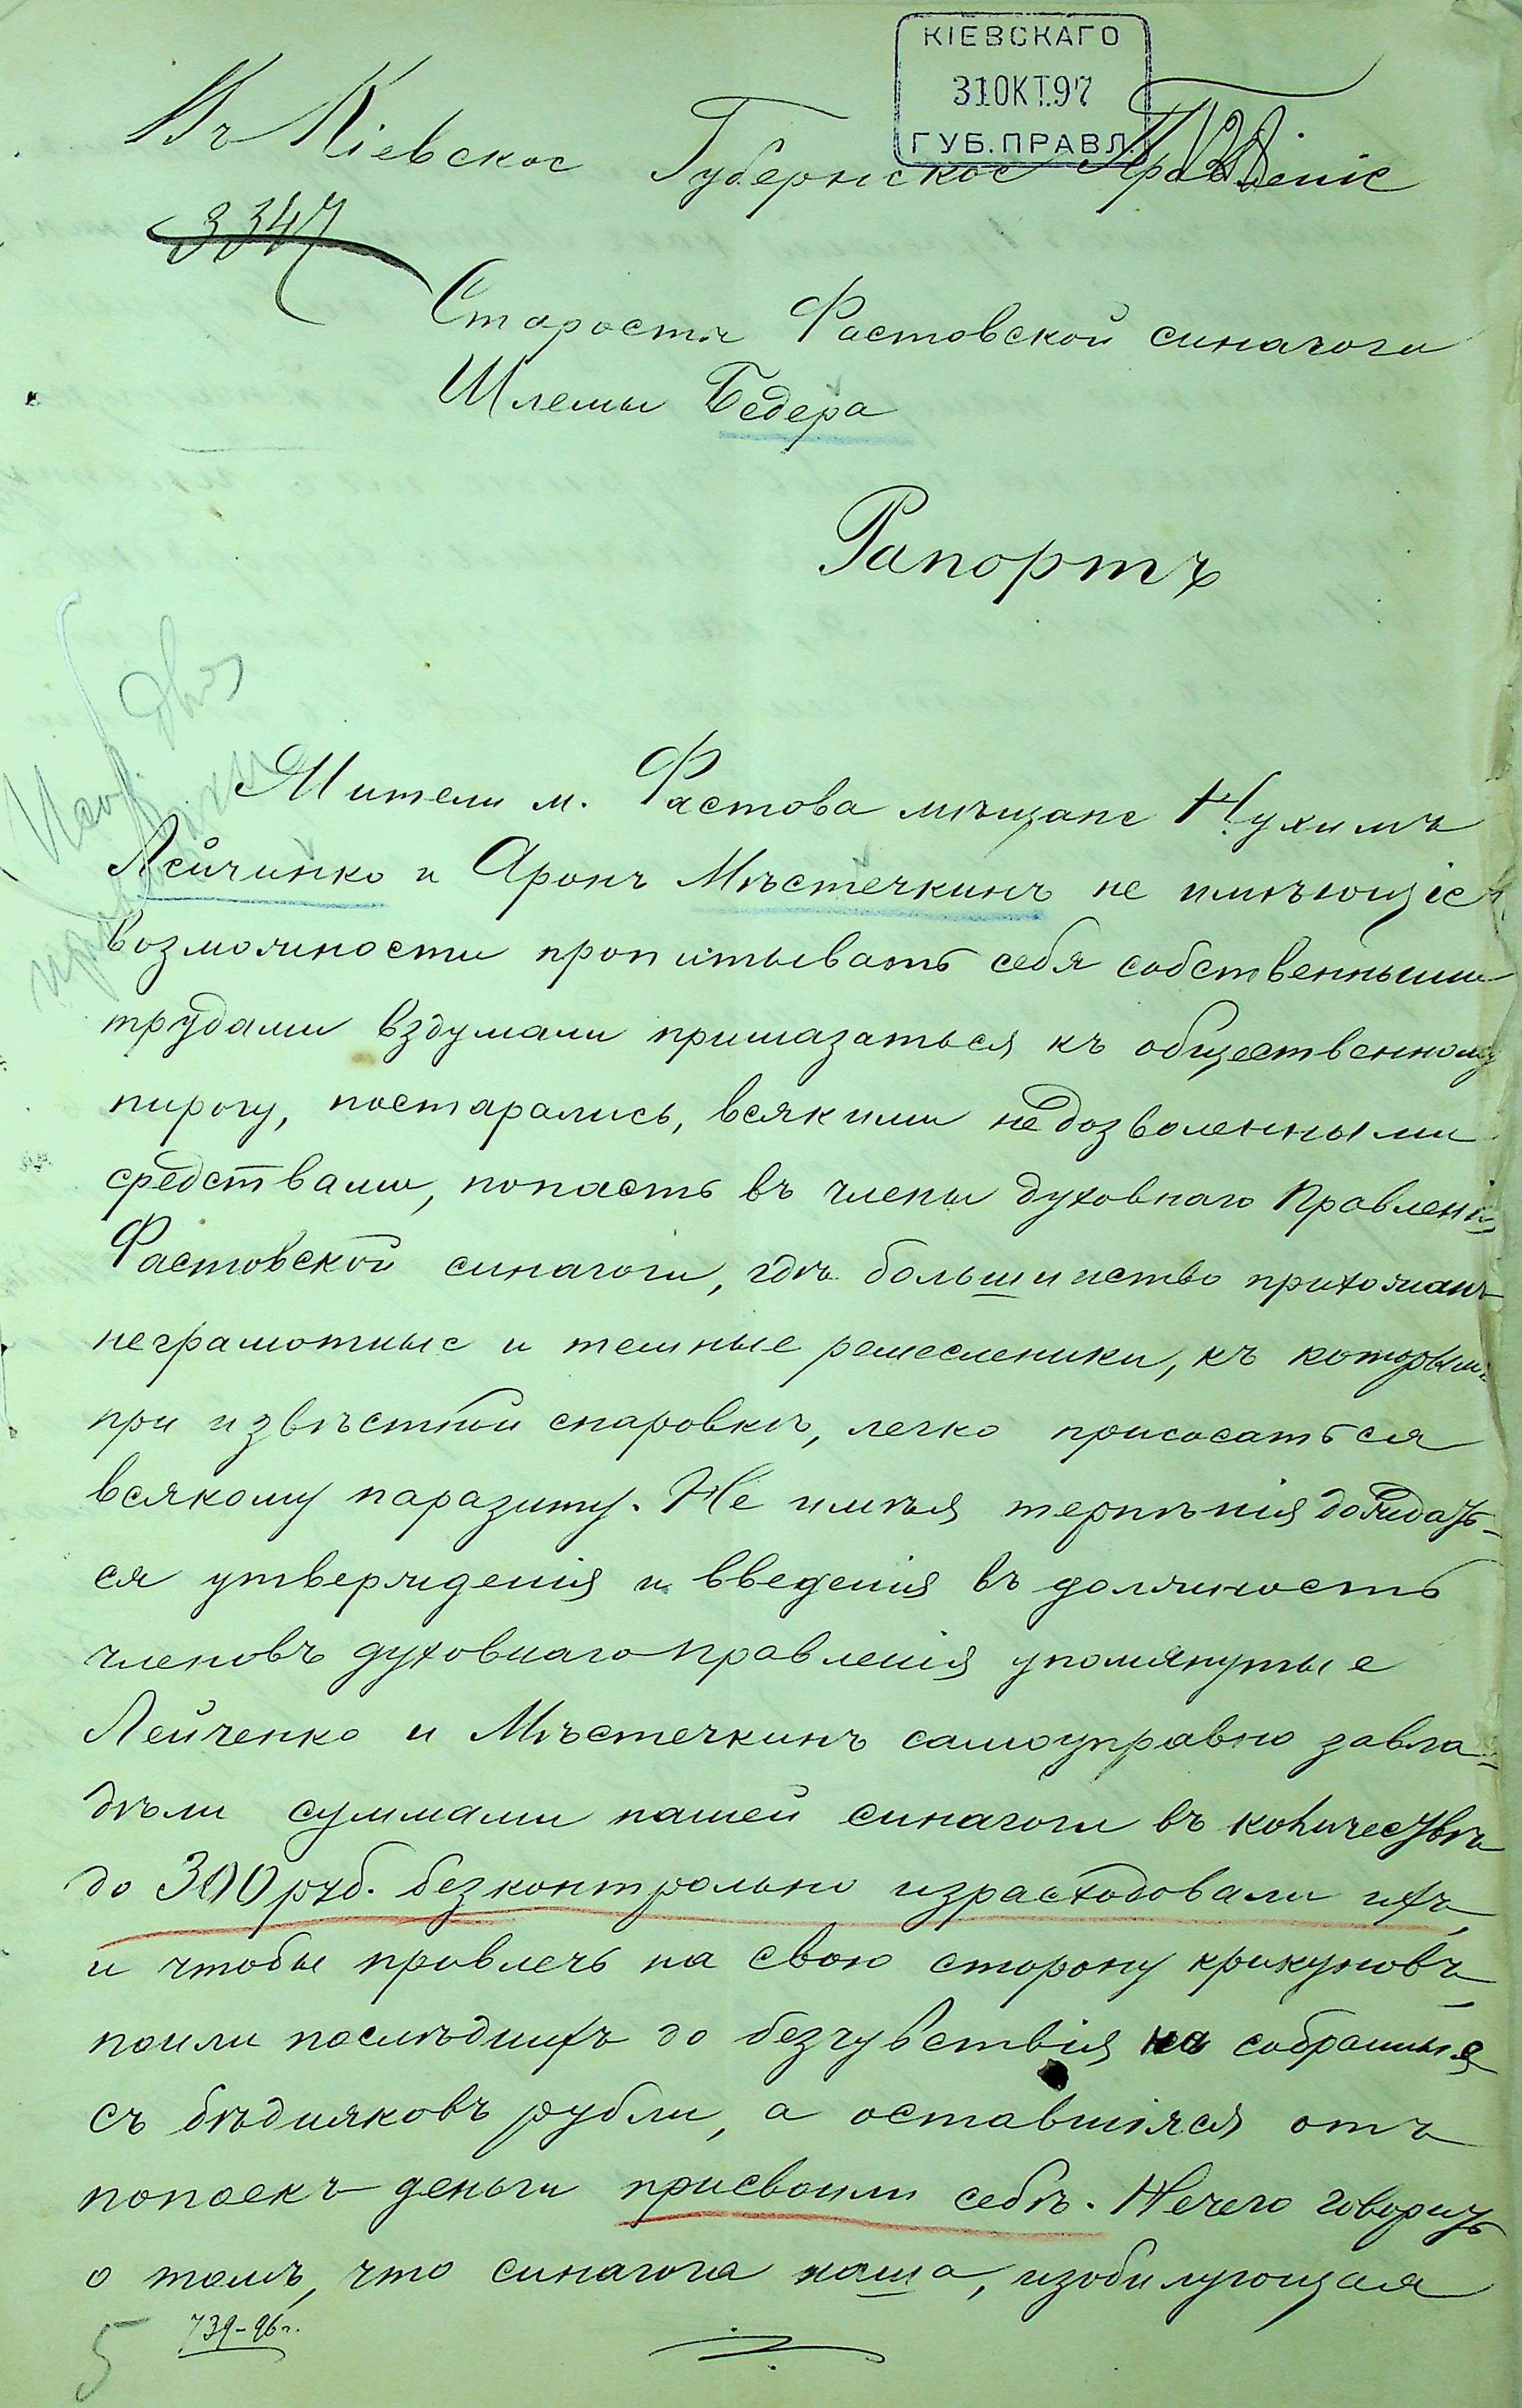 КІЕВСКАГО
31 ОКТ. 97
ГУБ. ПРАВЛ.
Въ Кіевское Губернское Правленіе
3347
Старосты Фастовской синагоги
Шлемы Бедера
Рапортъ
Жители м. Фастова мѣщане Нухимъ
Лейчинко и Аронъ Мѣстечкинъ не имѣющіе
возможности пропитывать себя собственными
трудами вздумали примазаться къ общественному
пирогу, постарались, всякими недозволенными
средствами, попасть въ члены духовнаго Правленія
Фастовской синагоги, гдѣ большинство прихожанъ
неграмотные и темные ремесленики, къ которымъ
при извѣстной сноровкѣ, легко присосаться
всякому паразиту. Не имѣя терпѣнія дожидать-
ся утвержденія и введенія въ должность
членовъ духовнаго правленія упомянутые
Лейченко и Мѣстечкинъ самоуправно завла-
дѣли суммами нашей синагоги въ количествѣ
до 300 руб. безконтрольно израсходовали ихъ,
и чтобы провлечь на свою сторону крикуновъ,
поили послѣднихъ до безчувствія на собранные
съ бѣдняковъ рубли, а оставшіяся отъ
попоекъ деньги присвоили себѣ. Нечего говорить
о томъ, что синагога наша, изобилующая
5
739-96 г.